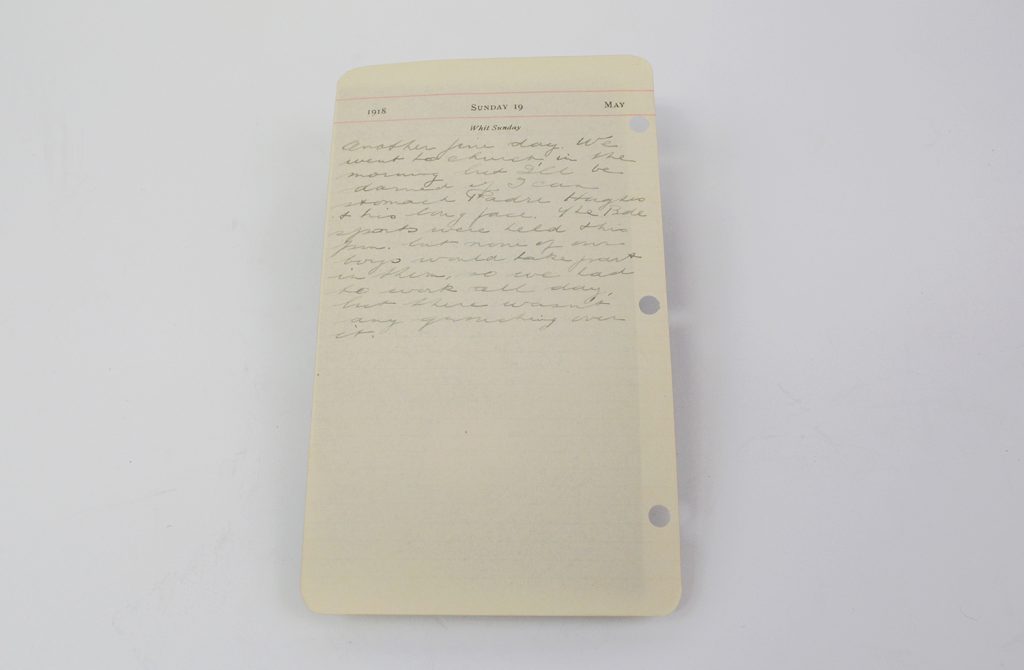 1918 SUNDAY 19 MAY
Whit Sunday
Another fine day. We
went to church in the
morning but I'll be
darned if I can
stomach Padre Hughes
+ his long face. The Bde
sports were held this
pm. but none of our
boys would take part
in them, so we had
to work all day,
but there wasn't
any grouching over
it.